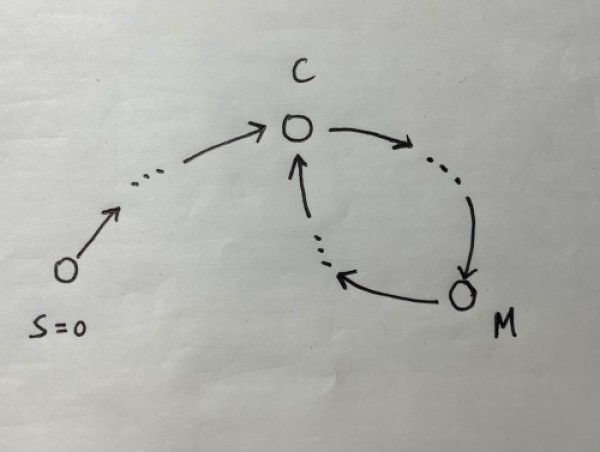 C
S=0
M